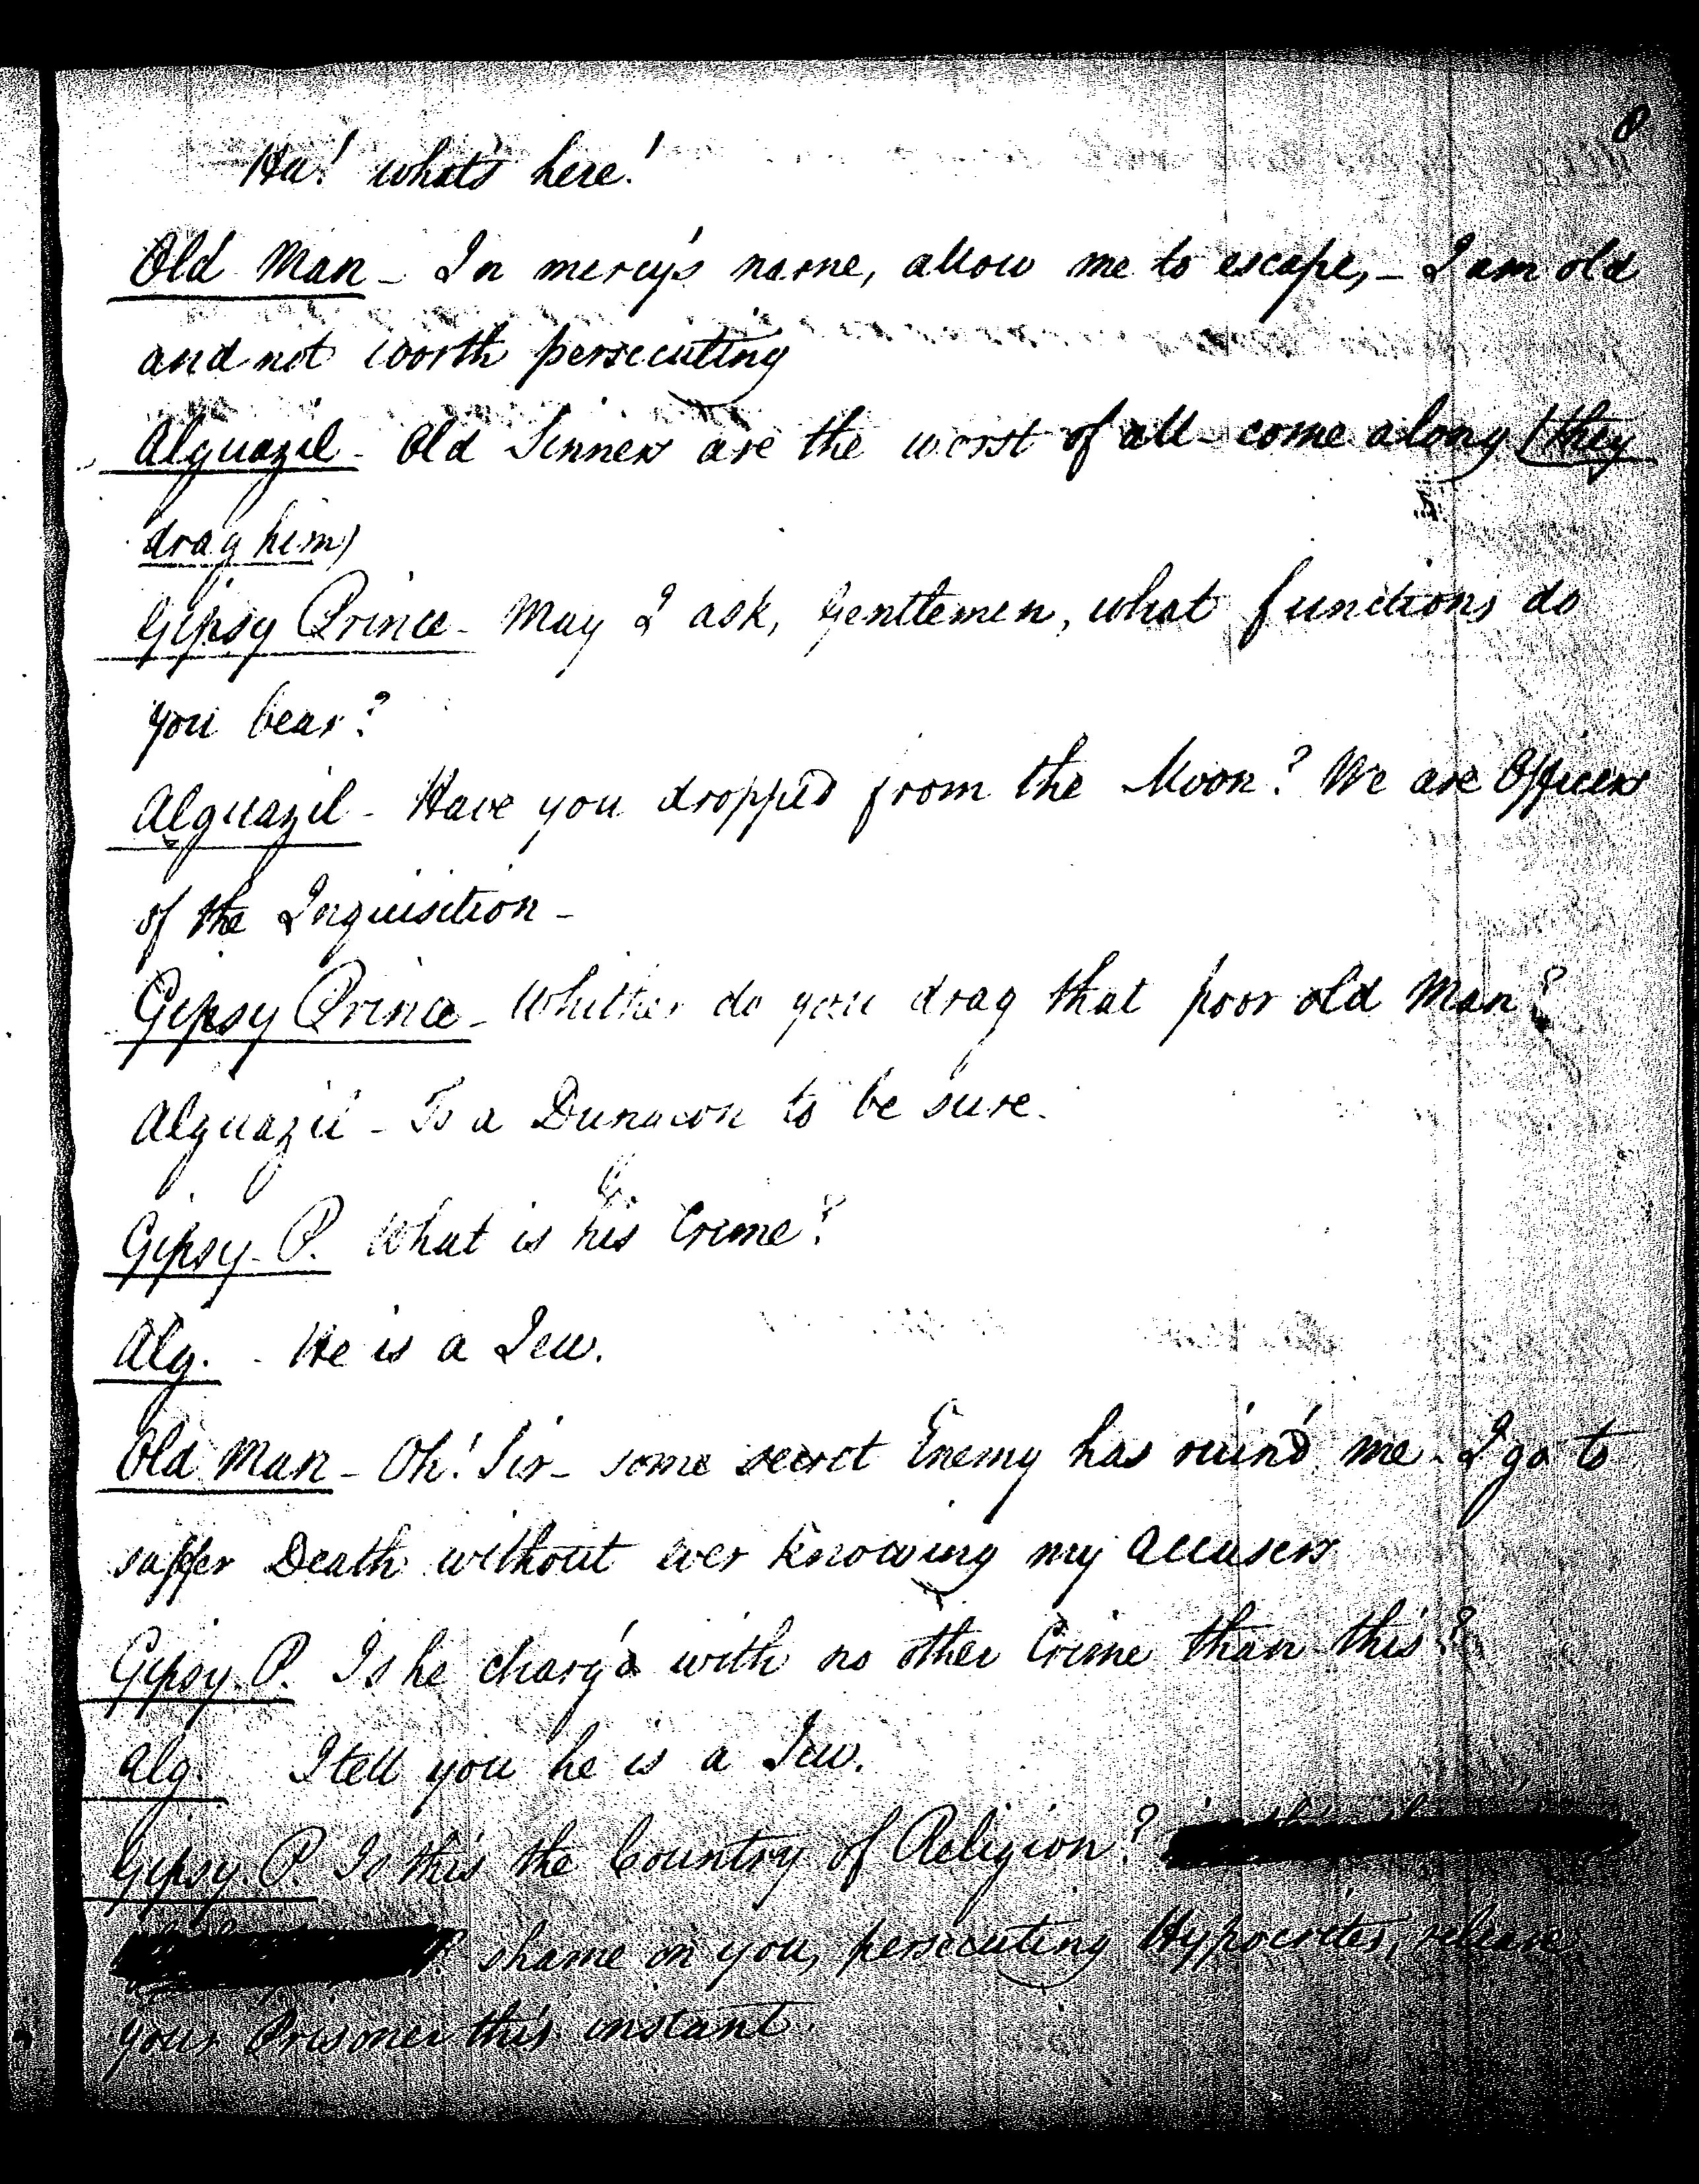 8
Ha! what's here!
Old Man - In mercy's name, allow me to escape, - I am old
and not worth persecuting
Alguazil - Old Sinners are the worst of all - come along (they
drag him)
Gipsy Prince - May I ask, Gentlemen, what functions do
you bear?
Alguazil - Have you dropp'd from the Moon? We are Officers
of the Inquisition -
Gipsy Prince - Whither do you drag that poor old Man?
Alguazil - To a Dungeon to be sure.
Gipsy - P. What is his Crime?
Alg. - He is a Jew.
Old Man - Oh! Sir - some secret Enemy has ruin'd me - I go to
suffer Death without ever knowing my Accusers
Gipsy. P. Is he charg'd with no other Crime than this?
Alg. I tell you he is a Jew.
Gipsy. P. Is this the Country of Religion?
shame on you, persecuting Hypocrites, release
your Prisoner this instant.